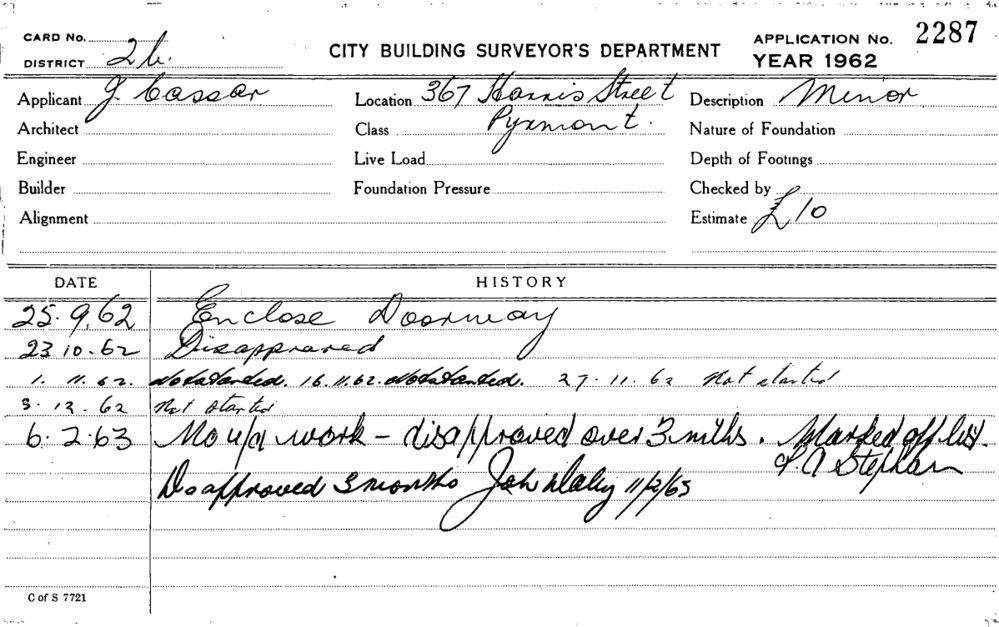 CARD No. CITY BUILDING SURVEYOR'S DEPARTMENT APPLICATION No. 2287
DISTRICT 2b. YEAR 1962
Applicant J. Cassar Location 367 Harris Street Description Minor
Architect Class Pyrmont. Nature of Foundation
Engineer Live Load Depth of Footings
Builder Foundation Pressure Checked by
Alignment Estimate £10
DATE HISTORY
25.9.62 Enclose Doorway
23 10.62 Disapproved
1. 11. 62. Not started. 16.11.62. Not started. 27.11.62 Not started
3.12.62 Not started
6.2.63 No u/a work - disapproved over 3 mths. Marked off list.
Stephan
Disapproved 3 months John Daley 11/2/63
C of S 7721